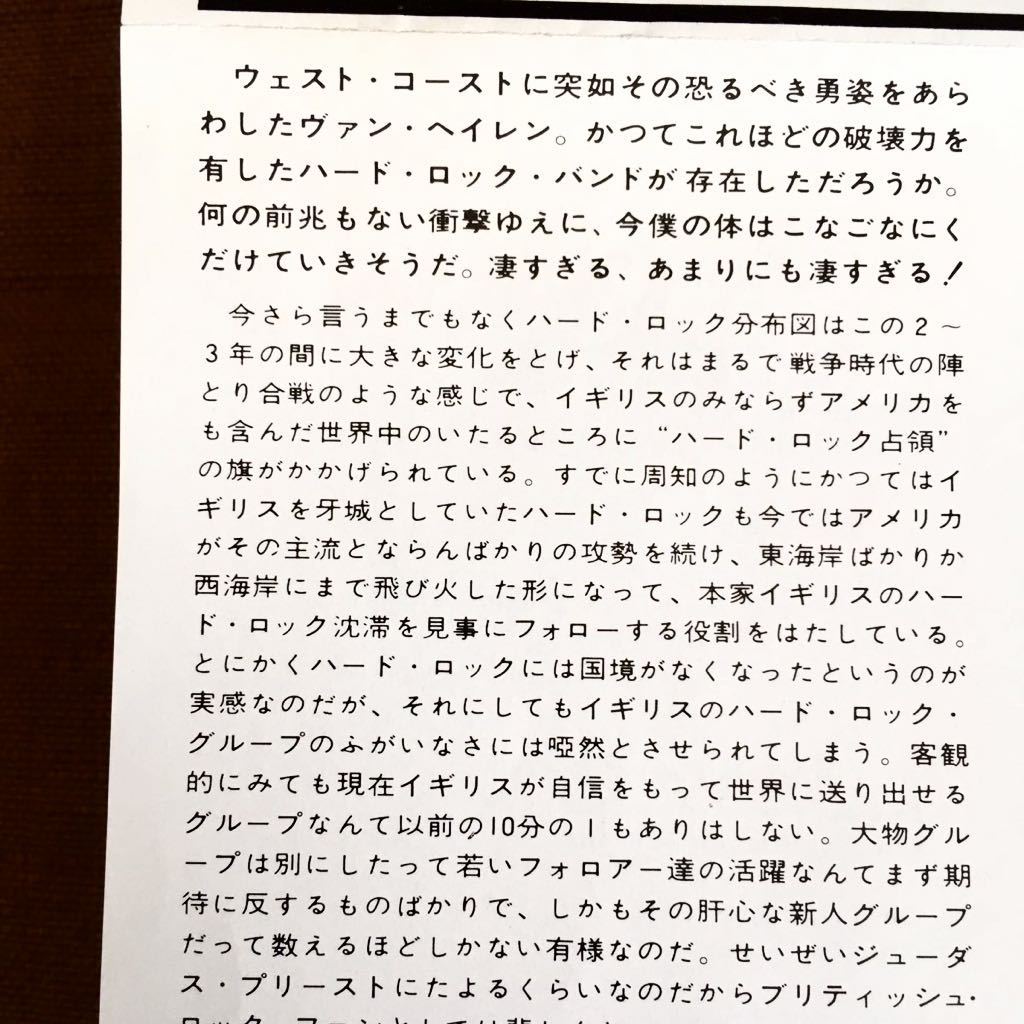 ウェスト・コーストに突如その恐るべき勇姿をあら
わしたヴァン・ヘイレン。かつてこれほどの破壊力を
有したハード・ロック・バンドが存在しただろうか。
何の前兆もない衝撃ゆえに、今僕の体はこなごなにく
だけていきそうだ。凄すぎる、あまりにも凄すぎる！
今さら言うまでもなくハード・ロック分布図はこの2～
3年の間に大きな変化をとげ、それはまるで戦争時代の陣
とり合戦のような感じで、イギリスのみならずアメリカを
も含んだ世界中のいたるところに“ハード・ロック占領”
の旗がかかげられている。すでに周知のようにかつてはイ
ギリスを牙城としていたハード・ロックも今ではアメリカ
がその主流とならんばかりの攻勢を続け、東海岸ばかりか
西海岸にまで飛び火した形になって、本家イギリスのハー
ド・ロック沈滞を見事にフォローする役割をはたしている。
とにかくハード・ロックには国境がなくなったというのが
実感なのだが、それにしてもイギリスのハード・ロック・
グループのふがいなさには啞然とさせられてしまう。客観
的にみても現在イギリスが自信をもって世界に送り出せる
グループなんて以前の10分の1もありはしない。大物グル
ープは別にしたって若いフォロアー達の活躍なんてまず期
待に反するものばかりで、しかもその肝心な新人グループ
だって数えるほどしかない有様なのだ。せいぜいジューダ
ス・プリーストにたよるくらいなのだからブリティッシュ・